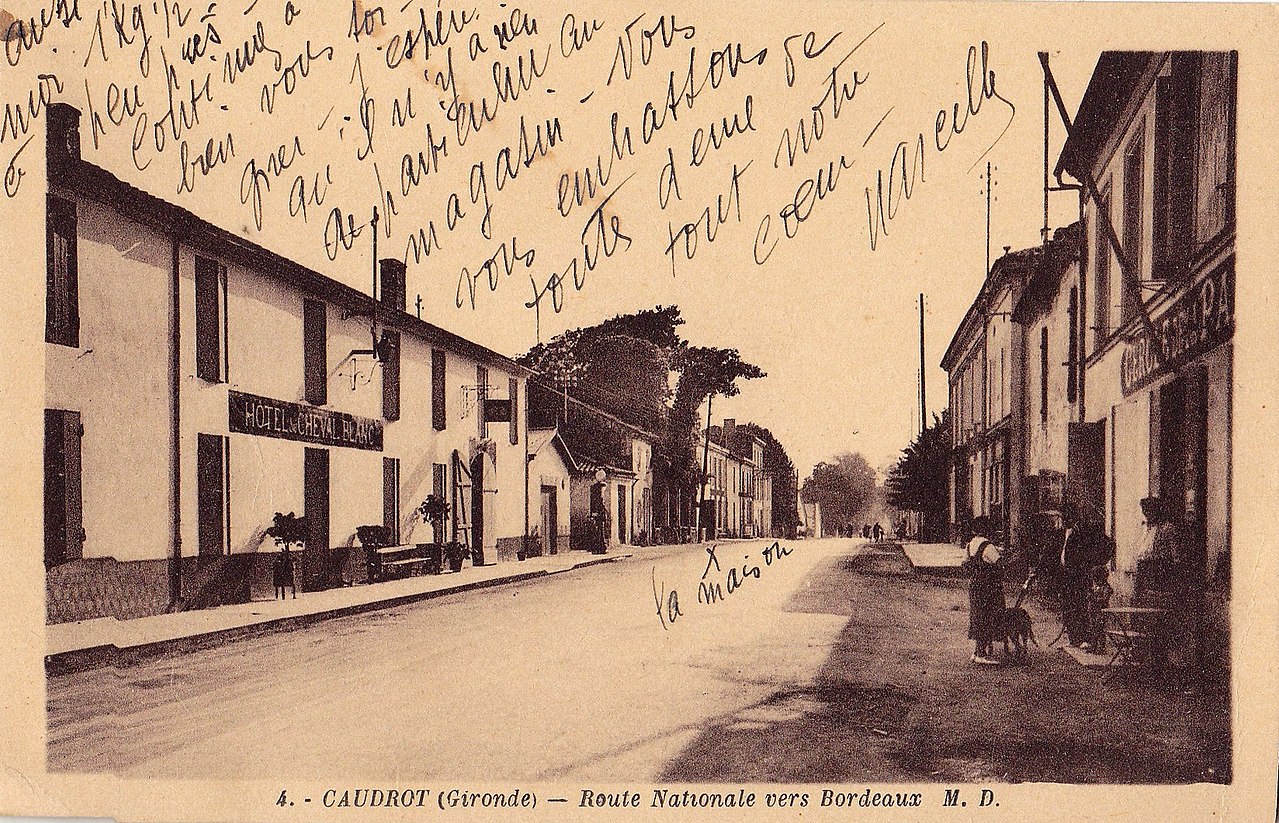 aussi
moi 1kg
à peu près
continué à
bien vous soi-
gner. j'espère
qu'il n'y a rien
de particulier au
magasin - Vous
vous embrassons de
toute deme
tout notre
cœur -
Marcelle
HOTEL DU CHEVAL BLANC
la maison
4. - CAUDROT (Gironde) — Route Nationale vers Bordeaux M. D.